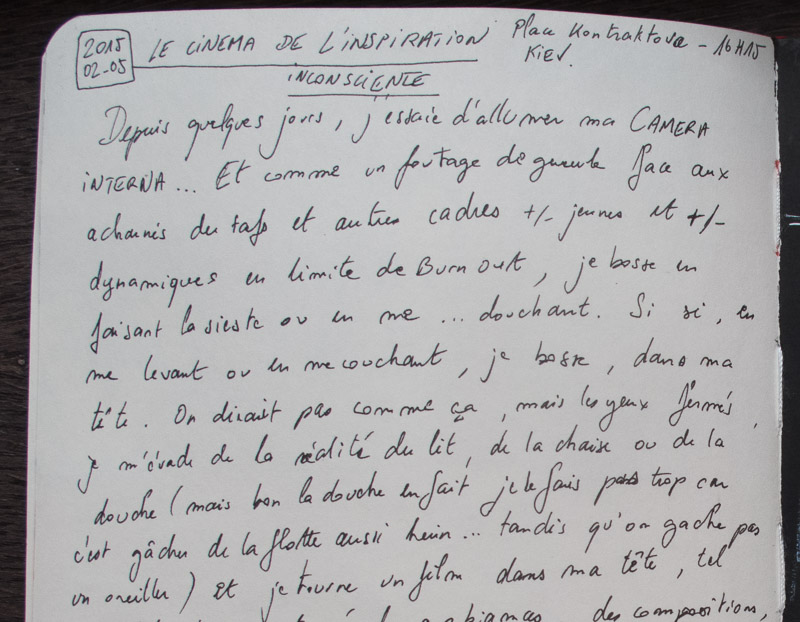 2015
02-05
LE CINEMA DE L'INSPIRATION
INCONSCIENTE
Place Kontraktova - 16H15
KIEV.
Depuis quelques jours, j'essaie d'allumer ma CAMERA
INTERNA... Et comme un foutage de gueule face aux
acharnés du taf et autres cadres +/- jeunes et +/-
dynamiques en limite de Burn out, je bosse en
faisant la sieste ou en me... douchant. Si si, en
me levant ou en me couchant, je bosse, dans ma
tête. On dirait pas comme ça, mais les yeux fermés,
je m'évade de la réalité du lit, de la chaise ou de la
douche (mais bon la douche en fait je le fais pas trop car
c'est gâcher de la flotte aussi hein... tandis qu'on gache pas
un oreiller) Et je tourne un film dans ma tête, tel
des compositions,